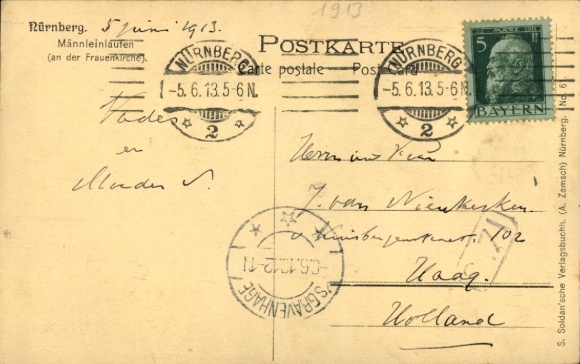 1913
Nürnberg. 5 juni 1913.
Männleinlaufen
(an der Frauenkirche).
POSTKARTE
Carte postale Post Card
NÜRNBERG
-5.6.13.5-6N.
2
NÜRNBERG
-5.6.13.5-6N.
2
12. MÄRZ 1911
5 5
BAYERN
Vader
en
Moeder
J. van Nieukerken
102
Haag.
Holland
'S GRAVENHAGE
S. Soldan'sche Verlagsbuchh. (A. Zemsch) Nürnberg. No. 6